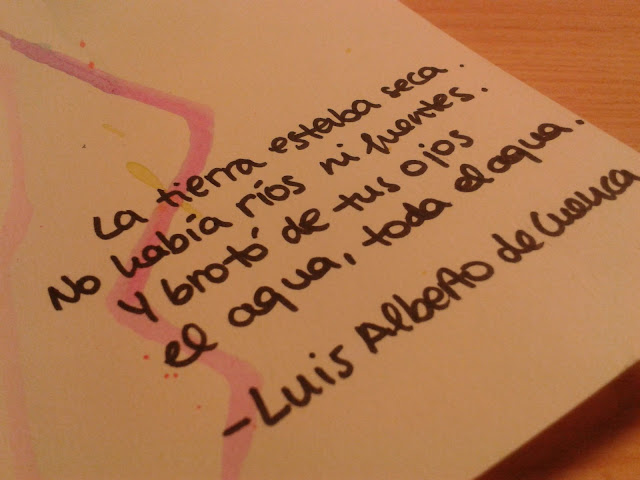 La tierra estaba seca.
No había ríos ni fuentes.
Y brotó de tus ojos
el agua, toda el agua.
-Luis Alberto de Cuenca